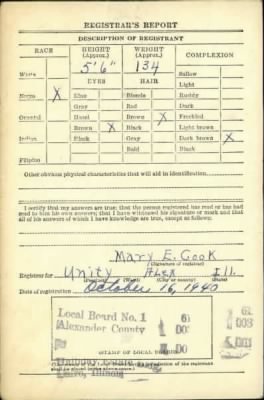 REGISTRAR'S REPORT
DESCRIPTION OF REGISTRANT
RACE HEIGHT (Approx.) WEIGHT (Approx.) COMPLEXION
5' 6" 134
White EYES HAIR Sallow
Light
Negro X Blue Blonde Ruddy
Gray Red Dark
Oriental Hazel Brown X Freckled
Brown X Black Light brown
Indian Black Gray Dark brown X
Bald Black
Filipino
Other obvious physical characteristics that will aid in identification
I certify that my answers are true; that the person registered has read or has had
read to him his own answers; that I have witnessed his signature or mark and that
all of his answers of which I have knowledge are true, except as follows:
Mary E. Cook
(Signature of registrar)
Registrar for Unity Alex Ill.
Date of registration October 16, 1940
Local Board No. 1
Alexander County
(STAMP OF LOCAL BOARD)
Cairo, Illinois